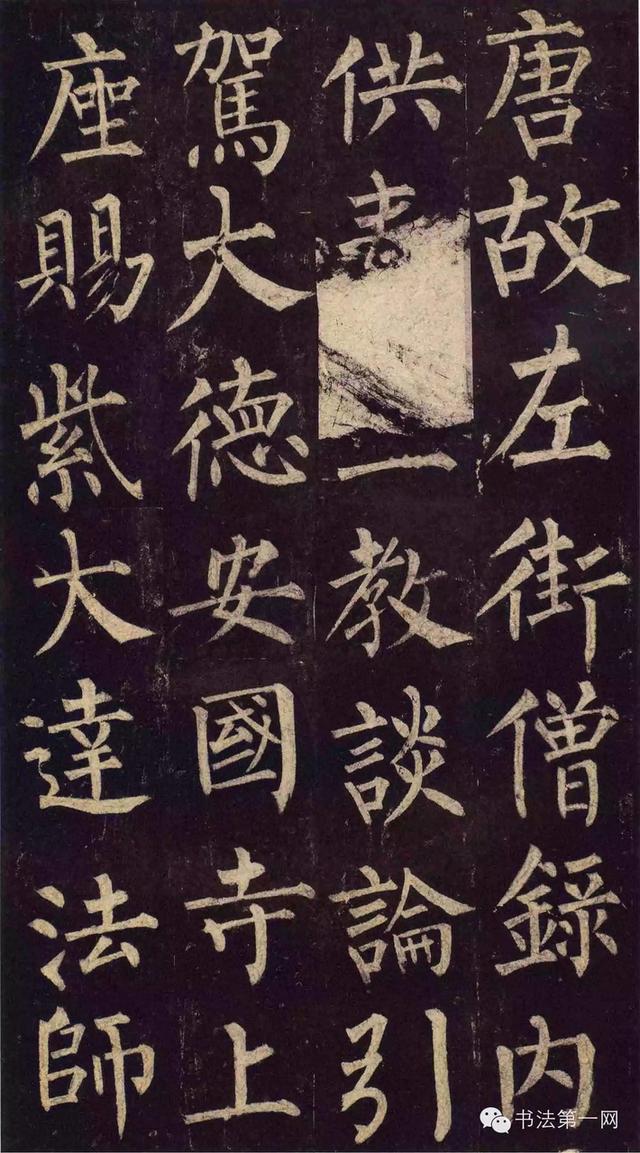 唐故左街僧錄內
供一教談論引
駕大德安國寺上
座賜紫大達法師
书法第一网